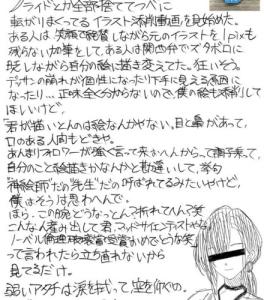 プライドとか全部捨ててつべに
転がりまくってるイラスト添削動画を見始めた。
ある人は笑顔で絶賛しながら元のイラストを1pixも
残らない加筆をしてて、ある人は関西弁でズタボロに
貶しながら自分の絵に描き変えてた。狂いそう。
デッサンの崩れが個性になったり下手に見える原因に
なったり…正味全く分からないので、僕の絵も添削して
ほしいけど、
「君が描いとんのは絵なんかやない、目と鼻があって、
口のある人間もどきや。
あんまりフォロワーが強く言って来おへんからって調子乗って、
自分のこと絵描きなんかと勘違いして、挙句
"神絵師"だの"先生"だの呼ばれてるみたいけど、
僕はそうは思わへんで。
ほら、この腕とどうなっとんマ折れてんで笑
こんなん産み出して君、マッドサイエンティストやな
ノーベル倫理崩壊賞受賞おめでとうな笑」
って言われたら立ち直れないから
見てるだけ。
弱いアタシは涙を拭って空を仰ぐの。